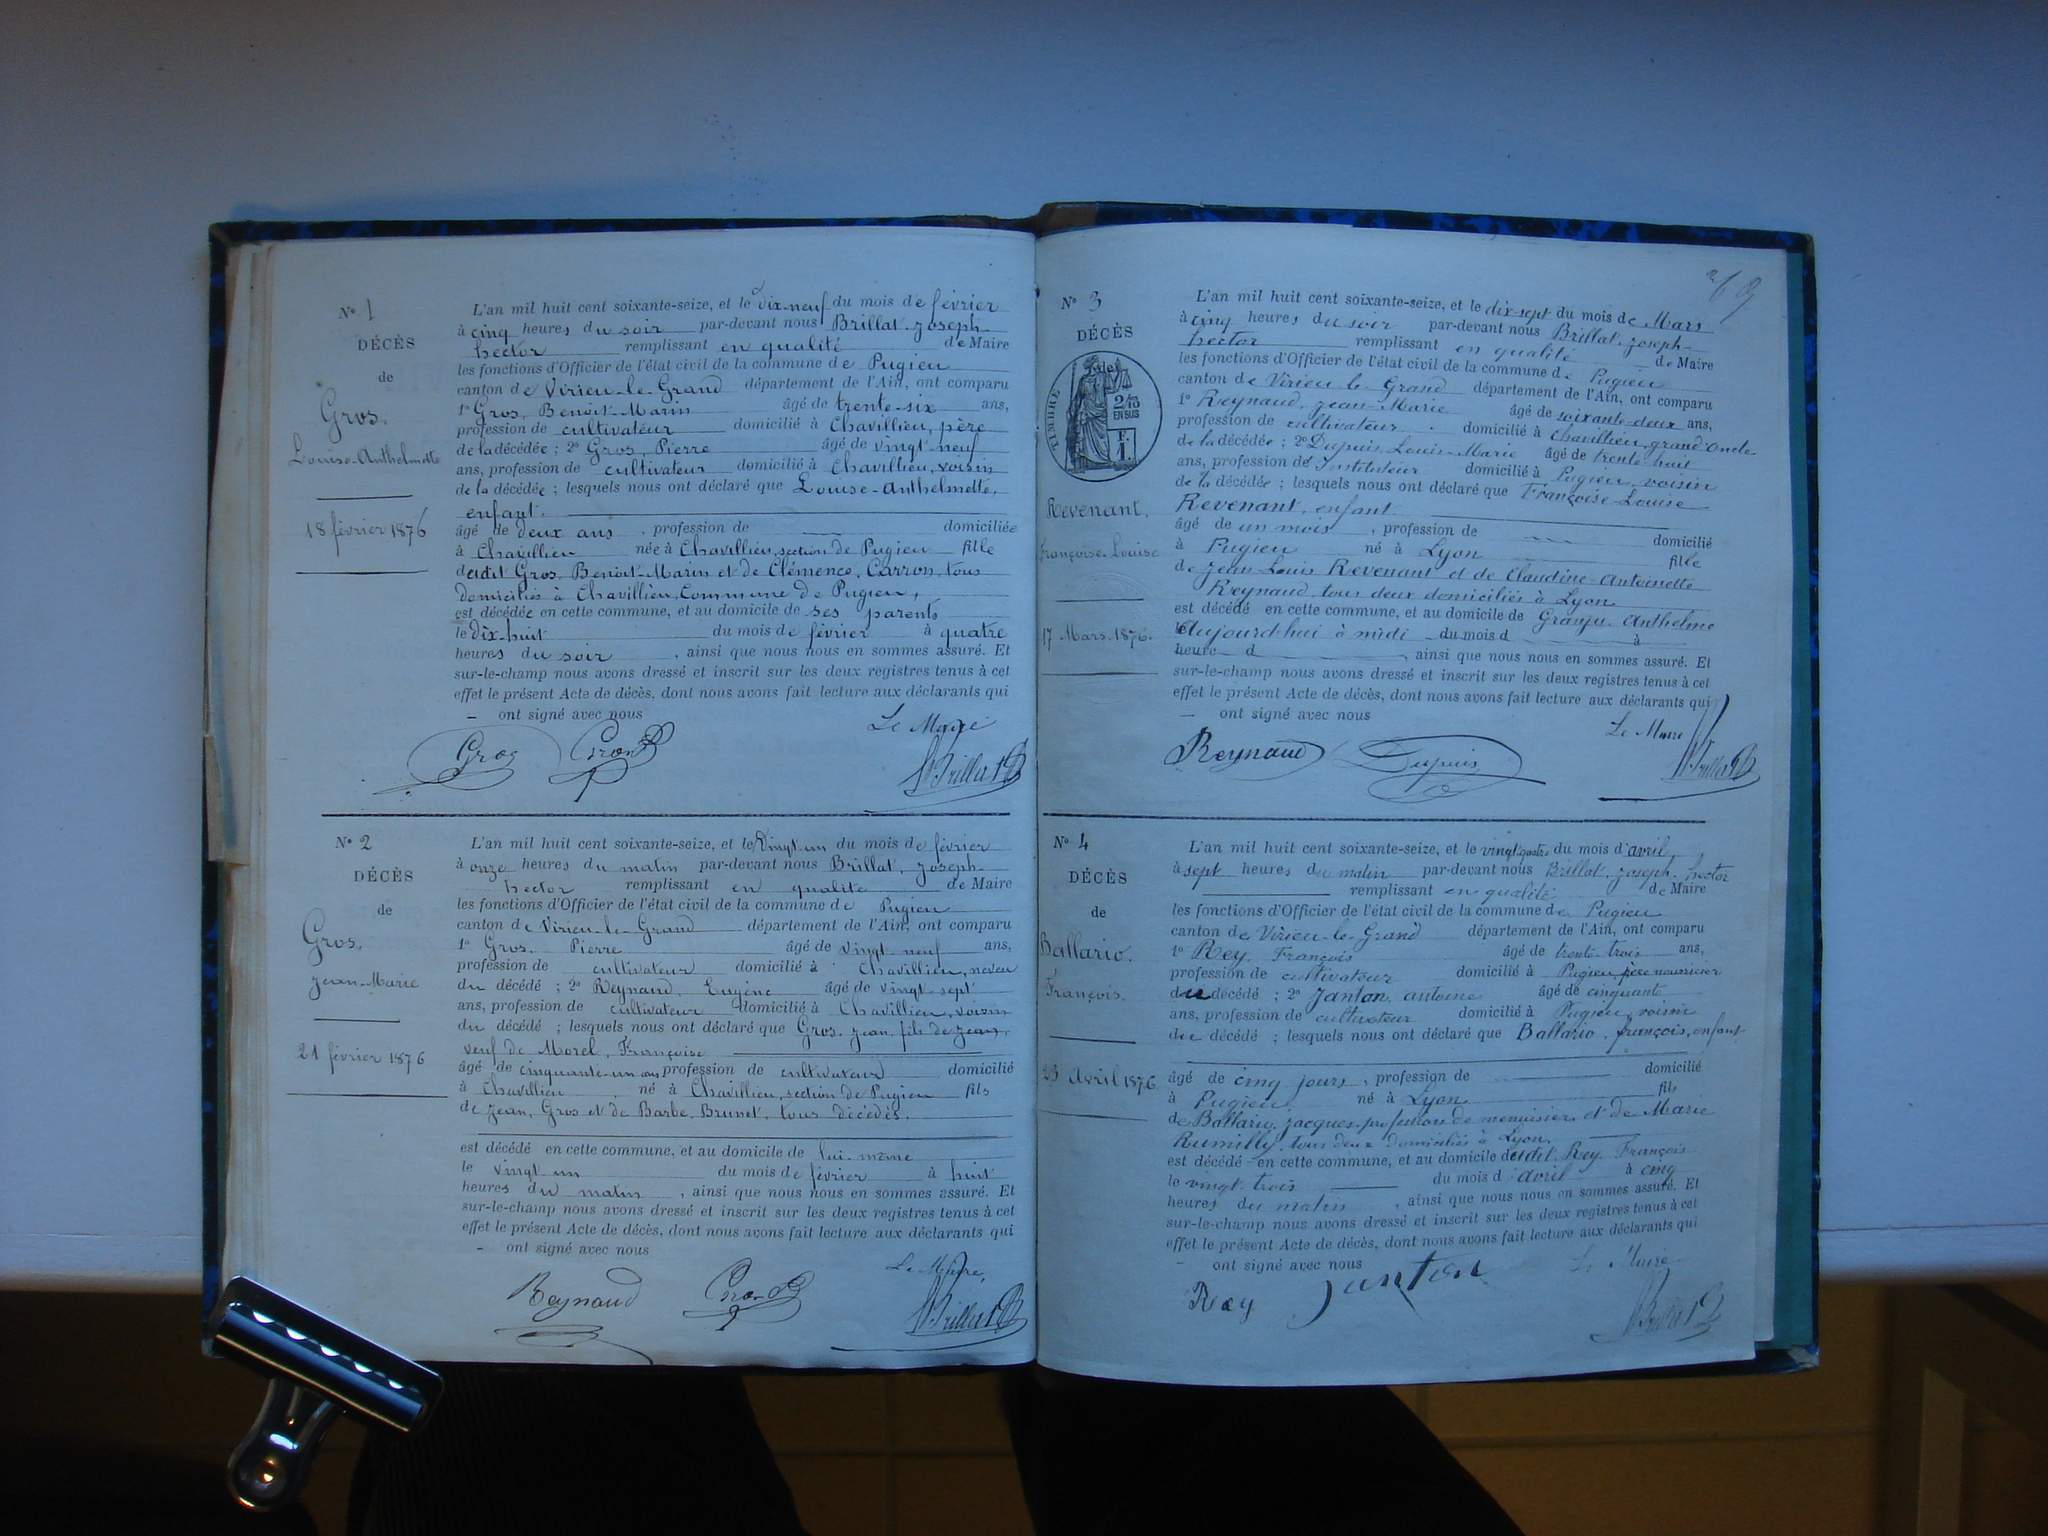 N° 1
DÉCÈS
de
Gros,
Louise-Anthelmette
18 février 1876
L'an mil huit cent soixante-seize, et le dix-neuf du mois de février
à cinq heures du soir par-devant nous Brillat, Joseph-
hector remplissant en qualité de Maire
les fonctions d'Officier de l'état civil de la commune de Pugieu
canton de Virieu-le-Grand département de l'Ain, ont comparu
1° Gros, Benoît-Marin âgé de trente-six ans,
profession de cultivateur domicilié à Chavillieu, père
de la décédée ; 2° Gros, Pierre âgé de vingt-neuf
ans, profession de cultivateur domicilié à Chavillieu, voisin
de la décédée ; lesquels nous ont déclaré que Louise-Anthelmette,
enfant.
âgé de deux ans, profession de domiciliée
à Chavillieu née à Chavillieu, section de Pugieu fille
dudit Gros, Benoît-Marin et de Clémence, Carron, tous
domiciliés à Chavillieu, Commune de Pugieu,
est décédée en cette commune, et au domicile de ses parents
le dix-huit du mois de février à quatre
heures du soir, ainsi que nous nous en sommes assuré. Et
sur-le-champ nous avons dressé et inscrit sur les deux registres tenus à cet
effet le présent Acte de décès, dont nous avons fait lecture aux déclarants qui
– ont signé avec nous
Le Maire
Gros Gros P Brillat
N° 2
DÉCÈS
de
Gros,
Jean-Marie
21 février 1876
L'an mil huit cent soixante-seize, et le vingt-un du mois de février
à onze heures du matin par-devant nous Brillat, Joseph-
hector remplissant en qualité de Maire
les fonctions d'Officier de l'état civil de la commune de Pugieu
canton de Virieu-le-Grand département de l'Ain, ont comparu
1° Gros, Pierre âgé de vingt-neuf ans,
profession de cultivateur domicilié à Chavillieu, neveu
du décédé ; 2° Reynaud, Eugène âgé de vingt-sept
ans, profession de cultivateur domicilié à Chavillieu, voisin
du décédé ; lesquels nous ont déclaré que Gros, Jean, fils de Jean,
veuf de Morel, Françoise
âgé de cinquante-un ans profession de cultivateur domicilié
à Chavillieu né à Chavillieu, section de Pugieu fils
de Jean, Gros et de Barbe, Brunet, tous décédés.
est décédé en cette commune, et au domicile de lui-même
le vingt-un du mois de février à huit
heures du matin, ainsi que nous nous en sommes assuré. Et
sur-le-champ nous avons dressé et inscrit sur les deux registres tenus à cet
effet le présent Acte de décès, dont nous avons fait lecture aux déclarants qui
– ont signé avec nous
Le Maire,
Reynaud Gros P Brillat
N° 3
DÉCÈS
TIMBRE
2/10
EN SUS
F.
1.
Revenant,
Françoise-Louise
17 Mars 1876.
L'an mil huit cent soixante-seize, et le dix-sept du mois de Mars
à cinq heures du soir par-devant nous Brillat, Joseph-
hector remplissant en qualité de Maire
les fonctions d'Officier de l'état civil de la commune de Pugieu
canton de Virieu-le-Grand département de l'Ain, ont comparu
1° Reynaud, Jean-Marie âgé de soixante-deux ans,
profession de cultivateur domicilié à Chavillieu, grand-oncle
de la décédée ; 2° Dupuis, Louis-Marie âgé de trente-huit
ans, profession d'Instituteur domicilié à Pugieu, voisin
de la décédée ; lesquels nous ont déclaré que Françoise-Louise
Revenant, enfant
âgé de un mois, profession de domicilié
à Pugieu né à Lyon fille
de Jean-Louis Revenant et de Claudine-Antoinette
Reynaud, tous deux domiciliés à Lyon
est décédé en cette commune, et au domicile de Granju, Anthelme
le Aujourd'hui à midi du mois d à
heure d , ainsi que nous nous en sommes assuré. Et
sur-le-champ nous avons dressé et inscrit sur les deux registres tenus à cet
effet le présent Acte de décès, dont nous avons fait lecture aux déclarants qui
– ont signé avec nous
Le Maire
Reynaud Dupuis Brillat
N° 4
DÉCÈS
de
Ballario,
François.
23 Avril 1876
L'an mil huit cent soixante-seize, et le vingt-quatre du mois d'avril,
à sept heures du matin par-devant nous Brillat, Joseph-hector
remplissant en qualité de Maire
les fonctions d'Officier de l'état civil de la commune de Pugieu
canton de Virieu-le-Grand département de l'Ain, ont comparu
1° Rey, François âgé de trente-trois ans,
profession de cultivateur domicilié à Pugieu, père nourricier
du décédé ; 2° Janton, antoine âgé de cinquante
ans, profession de cultivateur domicilié à Pugieu, voisin
du décédé ; lesquels nous ont déclaré que Ballario, françois, enfant
âgé de cinq jours, profession de domicilié
à Pugieu né à Lyon fils
de Ballario, Jacques, profession de menuisier et de Marie
Rumilly, tous deux domiciliés à Lyon
est décédé en cette commune, et au domicile dudit Rey, François
le vingt-trois du mois d'avril à cinq
heures du matin, ainsi que nous nous en sommes assuré. Et
sur-le-champ nous avons dressé et inscrit sur les deux registres tenus à cet
effet le présent Acte de décès, dont nous avons fait lecture aux déclarants qui
– ont signé avec nous
Le Maire
Rey Janton Brillat